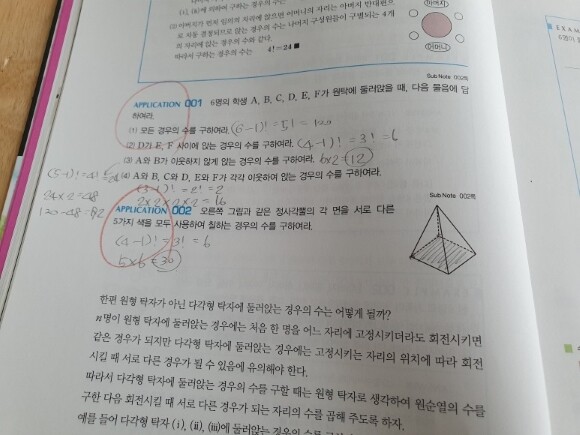 (i), (ii)에 의하여 구하는 경우의 수는
(3) 아버지가 먼저 임의의 자리에 앉으면 어머니의 자리는 아버지 맞대편으
로 자동 결정되므로 앉는 경우의 수는 나머지 구성원들이 구별되는 4개
의 자리에 앉는 경우의 수와 같다.
따라서 구하는 경우의 수는 4!=24 ■
아버지
어머니
EXAM
6명이
Sub Note 002쪽
APPLICATION 001 6명의 학생 A, B, C, D, E, F가 원탁에 둘러앉을 때, 다음 물음에 답
하여라.
(1) 모든 경우의 수를 구하여라. (6-1)! = 5! = 120
(2) D가 E, F 사이에 앉는 경우의 수를 구하여라. (4-1)! = 3! = 6
(3) A와 B가 이웃하지 않게 앉는 경우의 수를 구하여라. 6×2=12
(4) A와 B, C와 D, E와 F가 각각 이웃하여 앉는 경우의 수를 구하여라.
(5-1)! = 4!
24×2=48
120-48=82
(3-1)! = 2! = 2
2×2×2×2=16
Sub Note 002쪽
APPLICATION 002 오른쪽 그림과 같은 정사각뿔의 각 면을 서로 다른
5가지 색을 모두 사용하여 칠하는 경우의 수를 구하여라.
(4-1)! = 3! = 6
5×6=30
한편 원형 탁자가 아닌 다각형 탁자에 둘러앉는 경우의 수는 어떻게 될까?
n명이 원형 탁자에 둘러앉는 경우에는 처음 한 명을 어느 자리에 고정시키더라도 회전시키면
같은 경우가 되지만 다각형 탁자에 둘러앉는 경우에는 고정시키는 자리의 위치에 따라 회전
시킬 때 서로 다른 경우가 될 수 있음에 유의해야 한다.
따라서 다각형 탁자에 둘러앉는 경우의 수를 구할 때는 원형 탁자로 생각하여 원순열의 수를
구한 다음 회전시킬 때 서로 다른 경우가 되는 자리의 수를 곱해 주도록 하자.
예를 들어 다각형 탁자 (i), (ii), (iii)에 둘러앉는 경우의 수를